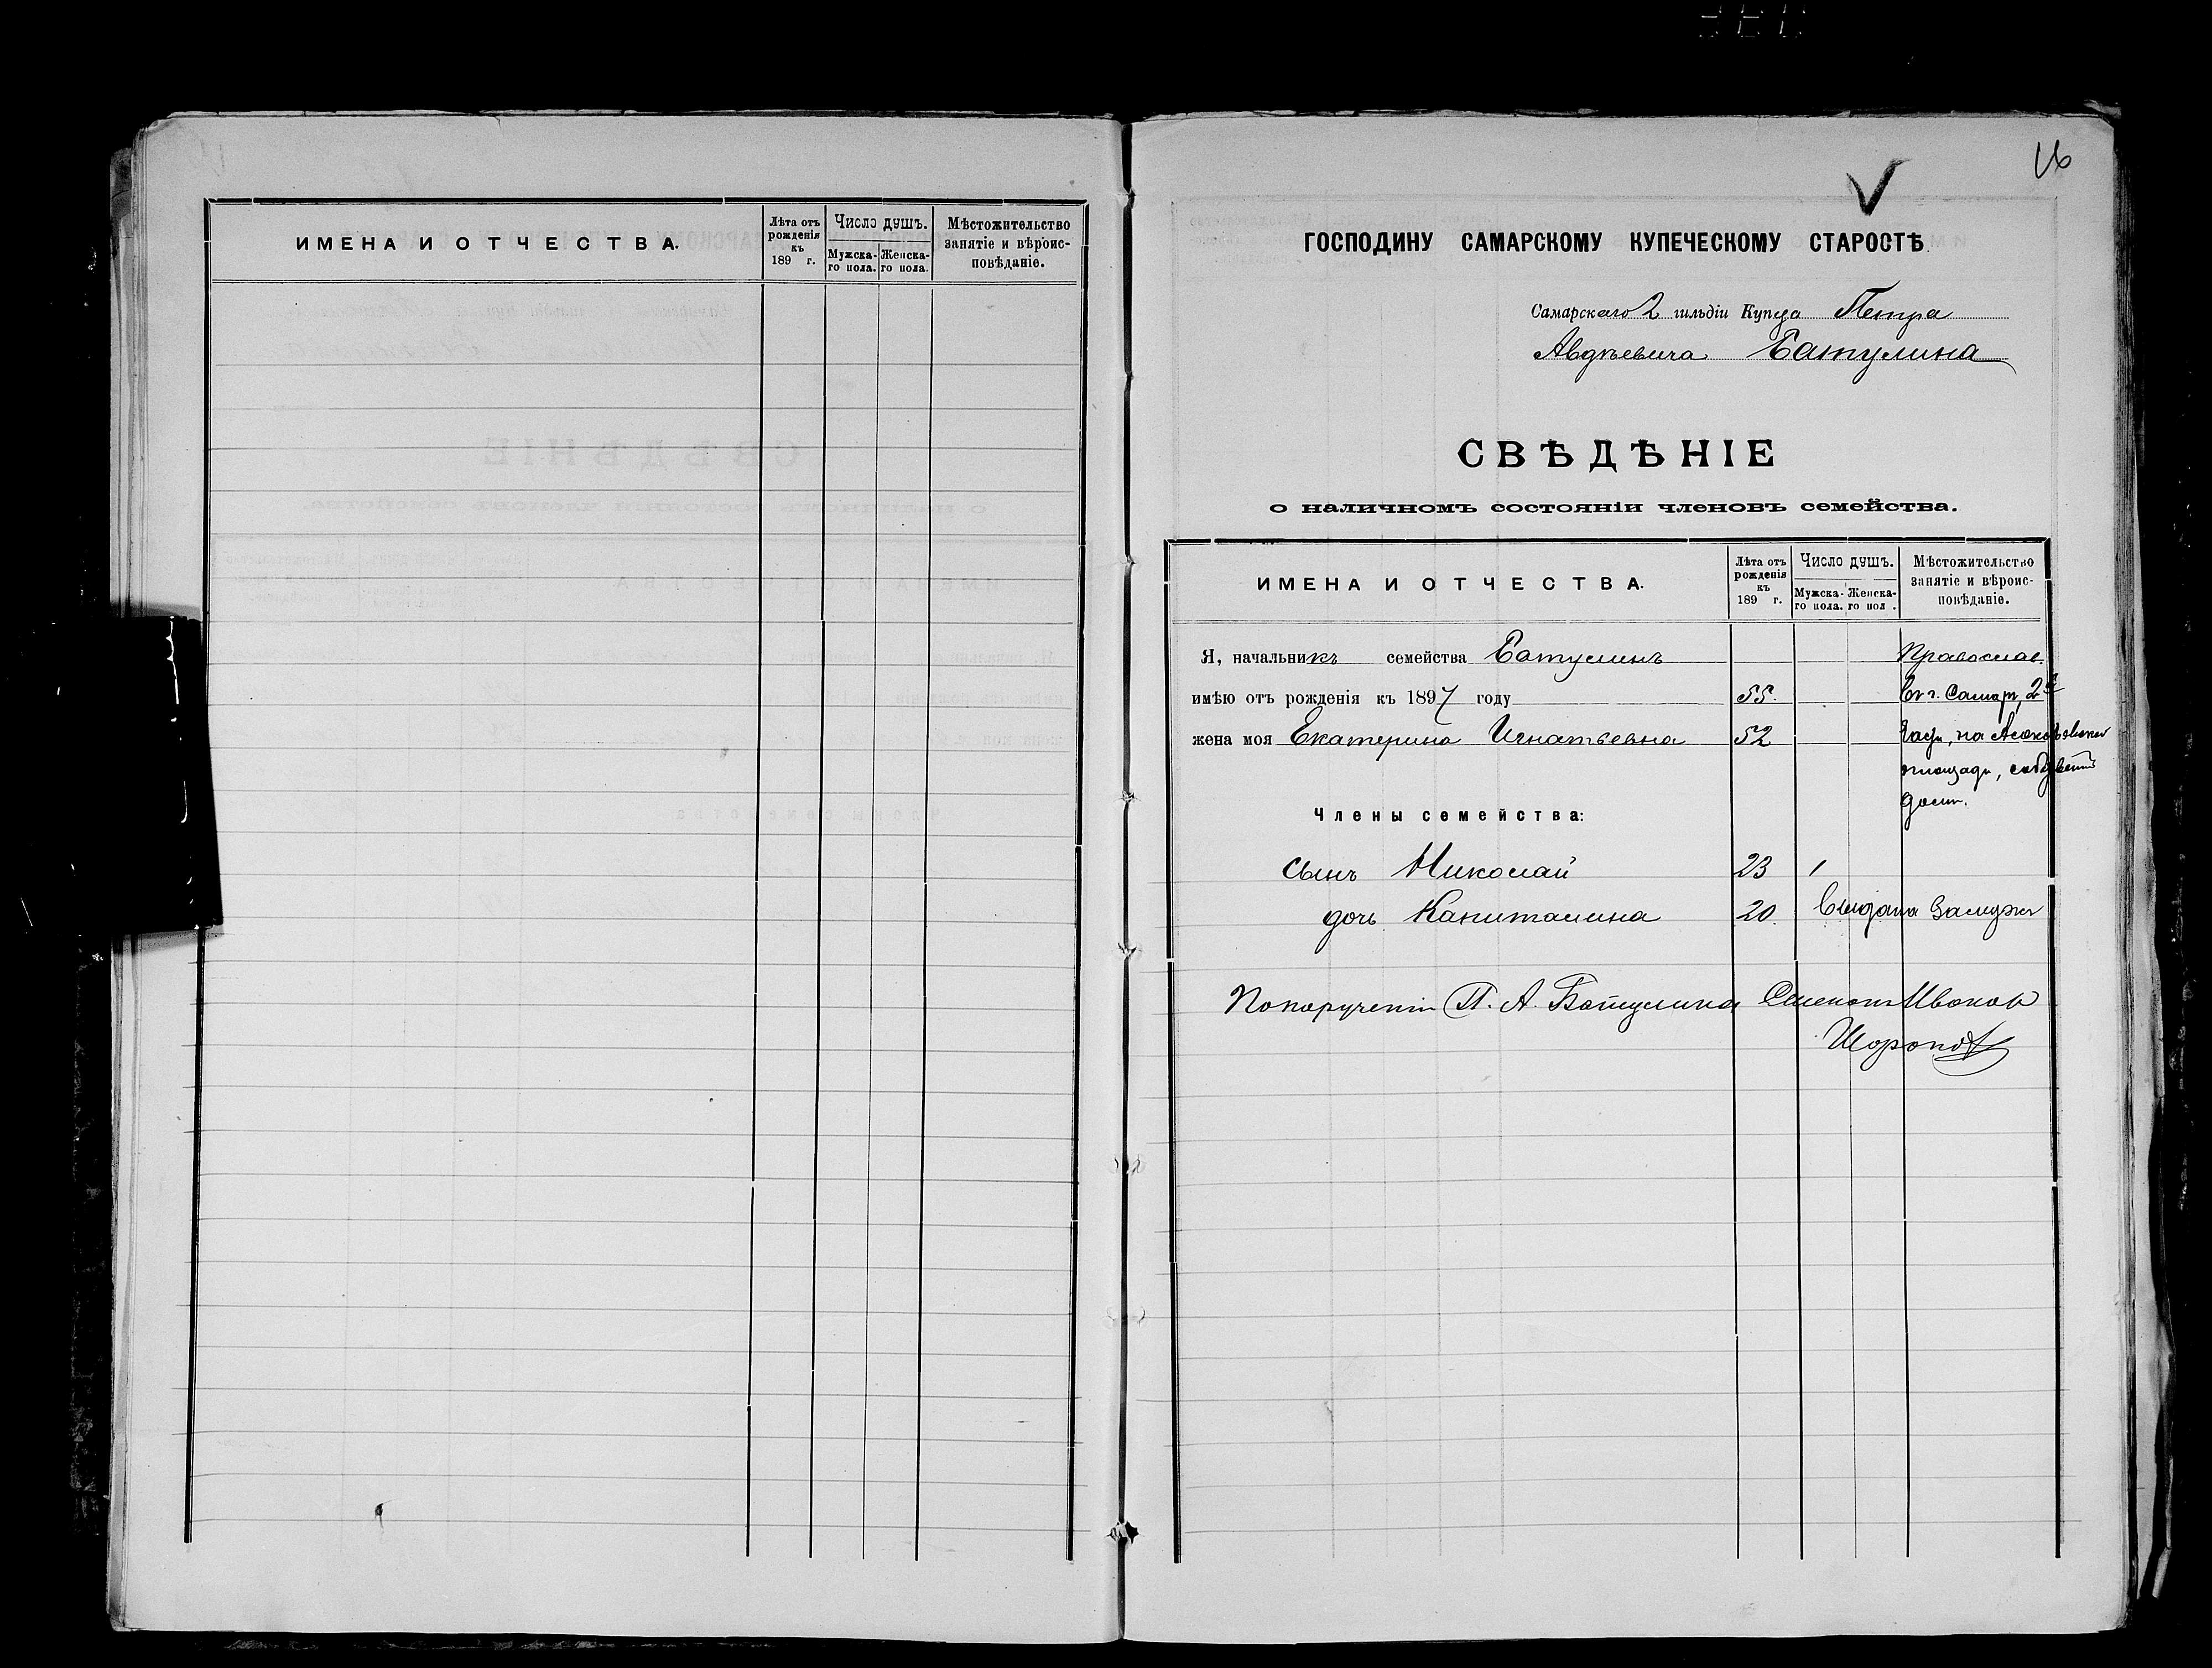 ИМЕНА И ОТЧЕСТВА.
Лѣта отъ рожденія къ 189 г.
Число душъ.
Мужска-го пола.
Женска-го пола.
Мѣстожительство занятіе и вѣроис-повѣданіе.
ГОСПОДИНУ САМАРСКОМУ КУПЕЧЕСКОМУ СТАРОСТѢ.
Самарскаго 2 гильдіи Купца Петра
Авдѣевича Батулина
СВѢДѢНІЕ
о наличномъ состояніи членовъ семейства.
ИМЕНА И ОТЧЕСТВА.
Лѣта отъ рожденія къ 189 г.
Число душъ.
Мужска-го пола.
Женска-го пол .
Мѣстожительство занятіе и вѣроис-повѣданіе.
Я, начальникъ семейства Батулинъ Православ.
имѣю отъ рожденія къ 1897 году 55. Въ г. Самар, 2й
жена моя Екатерина Игнатьевна 52 части, на
площади, собствен
домъ.
Члены семейства:
сынъ Николай 23 1
дочь Капиталина 20 Выдана замужъ
По порученію П. А. Батулина Семенъ Иванов